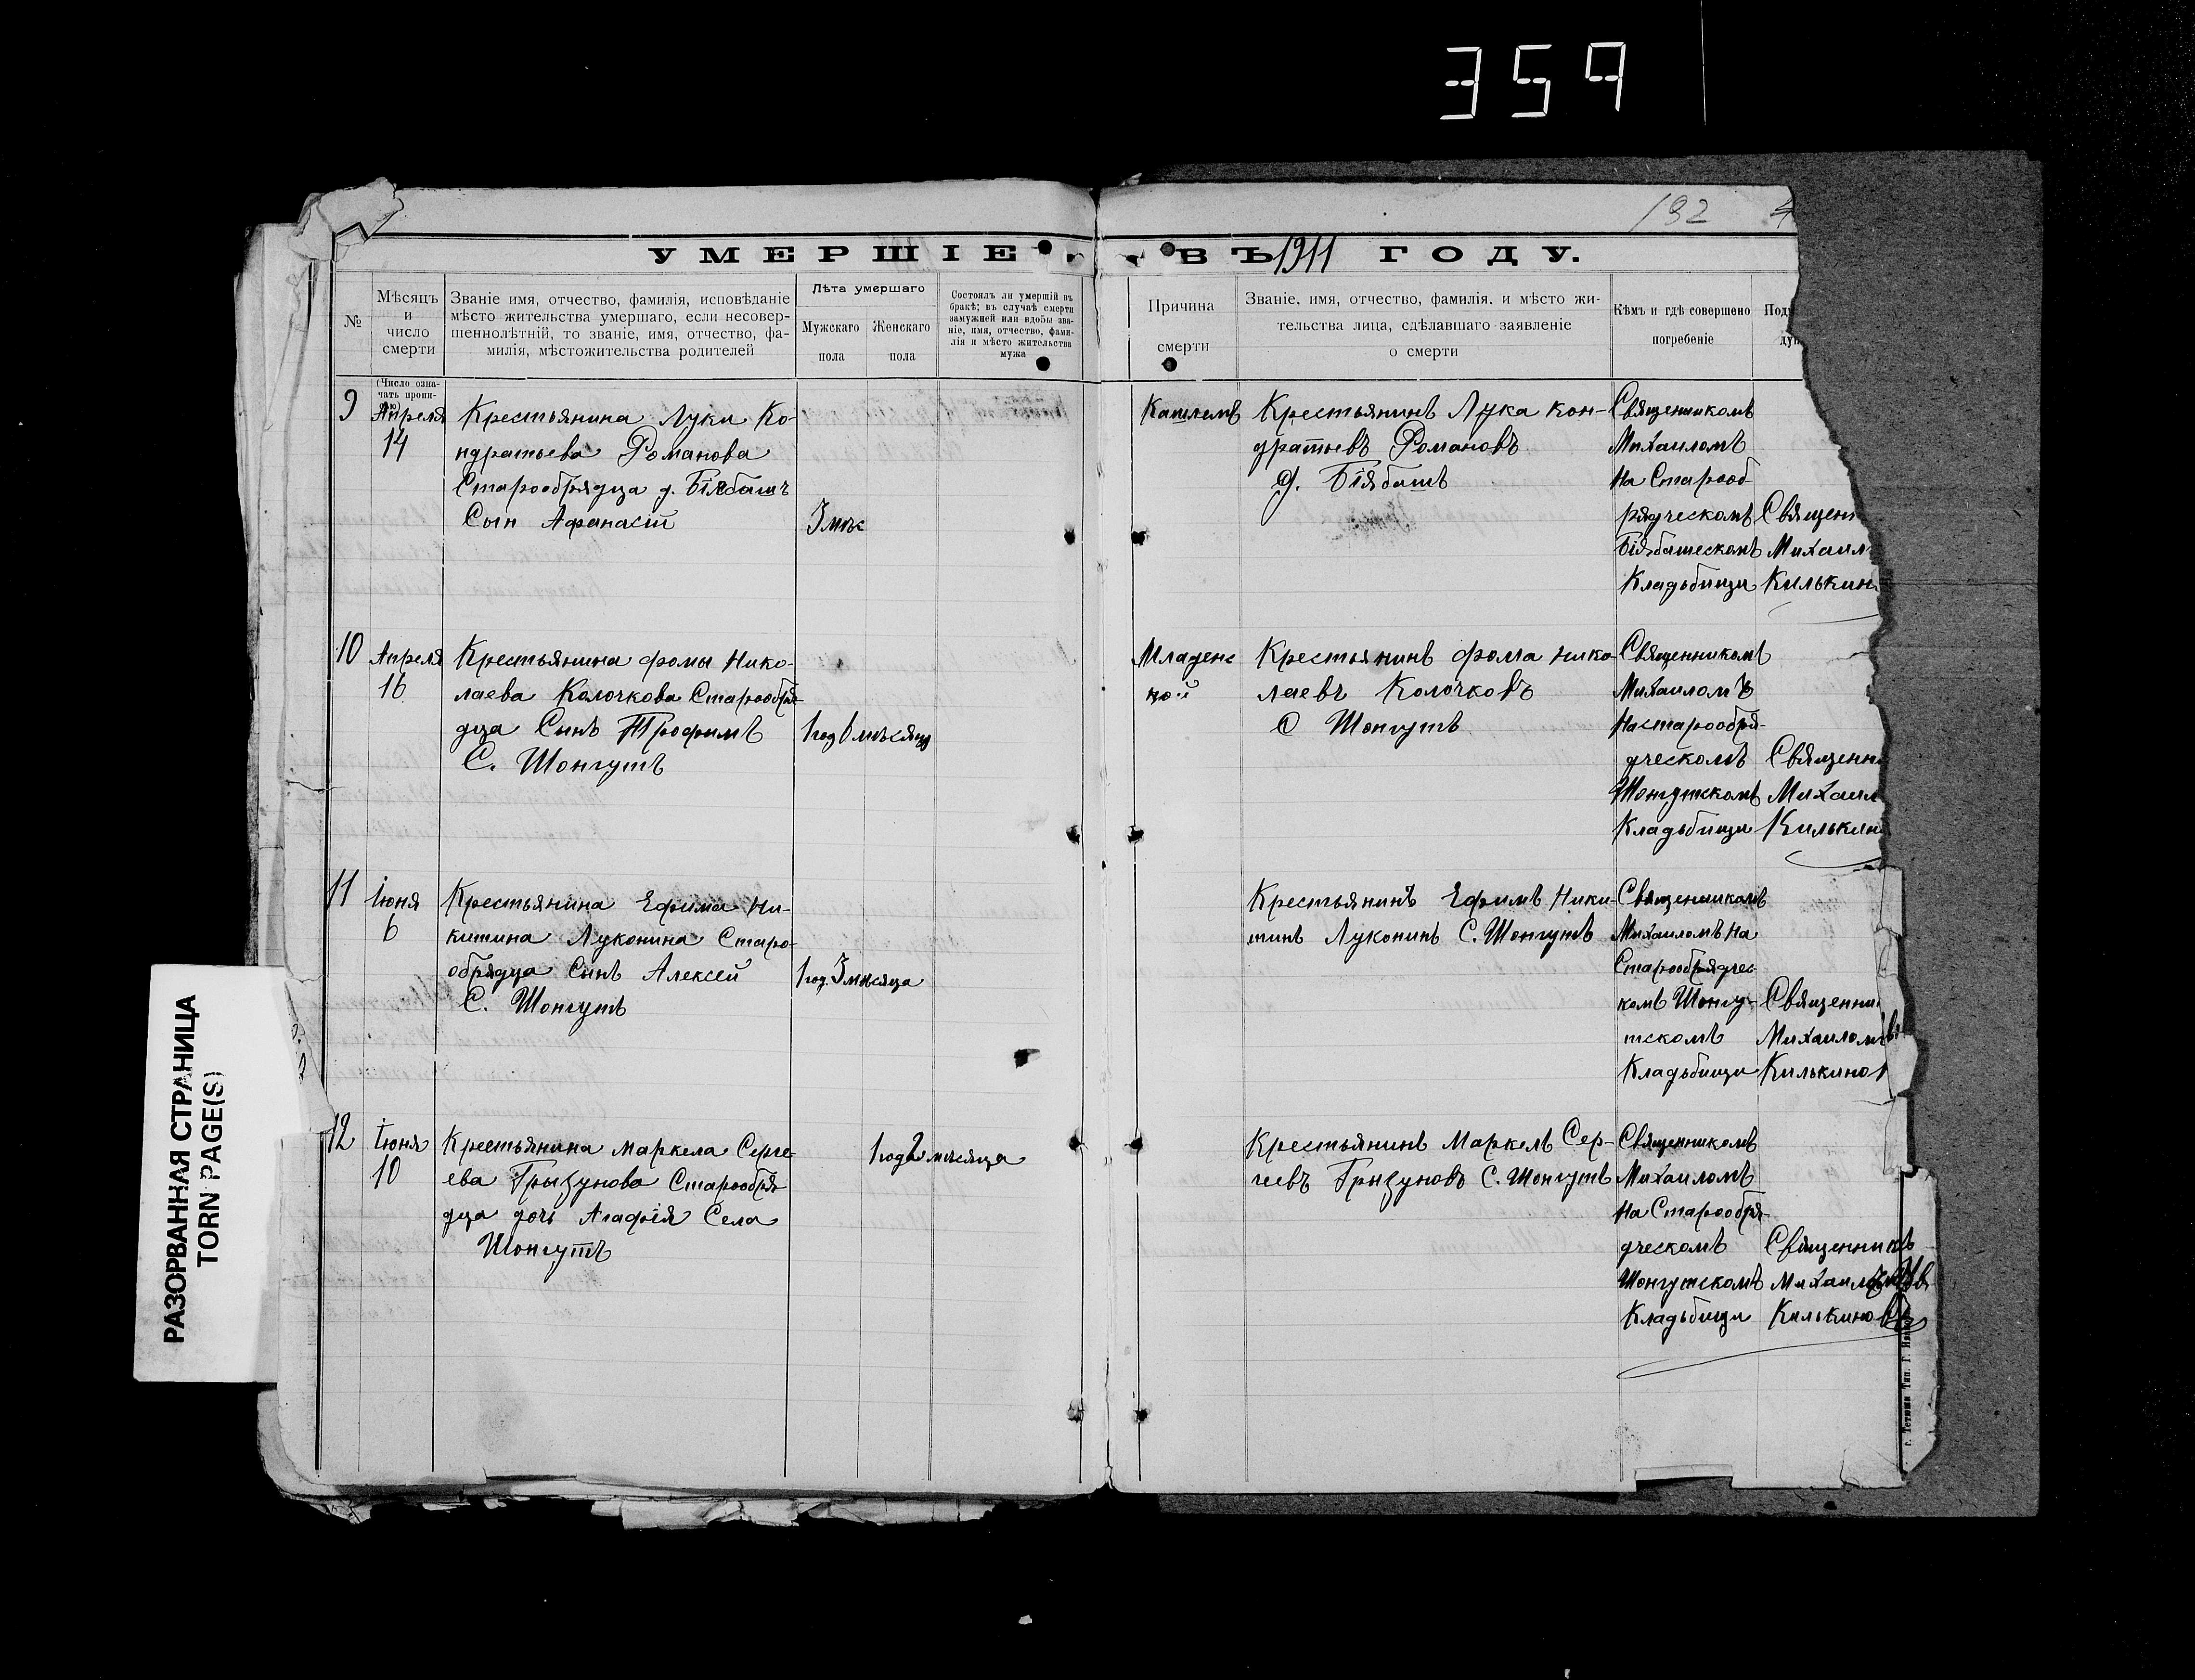 359
192
УМЕРШІЕ ВЪ 1911 ГОДУ.
№
Мѣсяцъ
и
число
смерти
Званіе имя, отчество, фамилія, исповѣданіе
мѣсто жительства умершаго, если несовер-
шеннолѣтній, то званіе, имя, отчество, фа-
милія, мѣстожительства родителей
Лѣта умершаго
Мужскаго
пола
Женскаго
пола
Состоялъ ли умершій въ
бракѣ; въ случаѣ смерти
замужней или вдовы зва-
ніе, имя, отчество, фами-
лія и мѣсто жительства
мужа
Причина
смерти
Званіе, имя, отчество, фамилія, и мѣсто жи-
тельства лица, сдѣлавшаго заявленіе
о смерти
Кѣмъ и гдѣ совершено
погребеніе
(Число озна-
чать пропи-
сью)
9
Апреля
14
Крестьянина Луки Ко-
ндратьева Романова
Старообрядца д. Біябашъ
Сын Афанасій
3 мѣс
Кашлемъ
Крестьянинъ Лука Кон-
дратьевъ Романовъ
д. Біябашъ
Священникомъ
Михаиломъ
На Старооб-
рядческомъ
Біябашескомъ
Кладьбищи
Священ
Михаил
Килькин
10
Апреля
16
Крестьянина Фомы Нико-
лаева Колочкова Старообря-
дца Сынъ Трофимъ
С. Шонгутъ
1 год 6 мѣсяцъ
Младенс
кой
Крестьянинъ Фома Нико-
лаевъ Колочковъ
С Шонгутъ
Священникомъ
Михаиломъ
На старообря-
дческомъ
Шонгутскомъ
Кладьбищи
Священн
Михаил
Килькин
11
Іюня
6
Крестьянина Ефима Ни-
китина Луконина Старо-
обрядца Сынъ Алексей
С. Шонгутъ
1 год. 3 мѣсяца
Крестьянинъ Ефимъ Ники-
тинъ Луконинъ С. Шонгутъ
Священникомъ
Михаиломъ На
Старообрядчес-
комъ Шонгу-
тскомъ
Кладьбищи
Священни
Михаиломъ
Килькино
12
Іюня
10
Крестьянина Маркела Серге-
ева Грызунова Старообря-
дца дочь Агафія Села
Шонгутъ
1 год 2 мѣсяца
Крестьянинъ Маркелъ Сер-
геевъ Грызуновъ С. Шонгутъ
Священникомъ
Михаиломъ
На Старообря-
дческомъ
Шонгутскомъ
Кладьбищи
Священникъ
Килькиновъ
г. Тетюши Тип. Г.
РАЗОРВАННАЯ СТРАНИЦА
TORN PAGE(S)